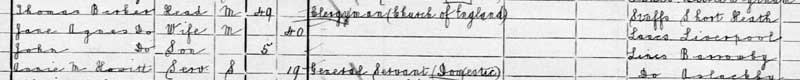 Thomas Barker Head M 49 Clergyman (Church of England) Staffs Short Heath
Jane Agnes Do Wife M 40 Lancs Liverpool
John Do Son 5 Lincs Barnoby
Annie M Hewitt Serv S 19 General Servant (Domestic) Do Aslackby